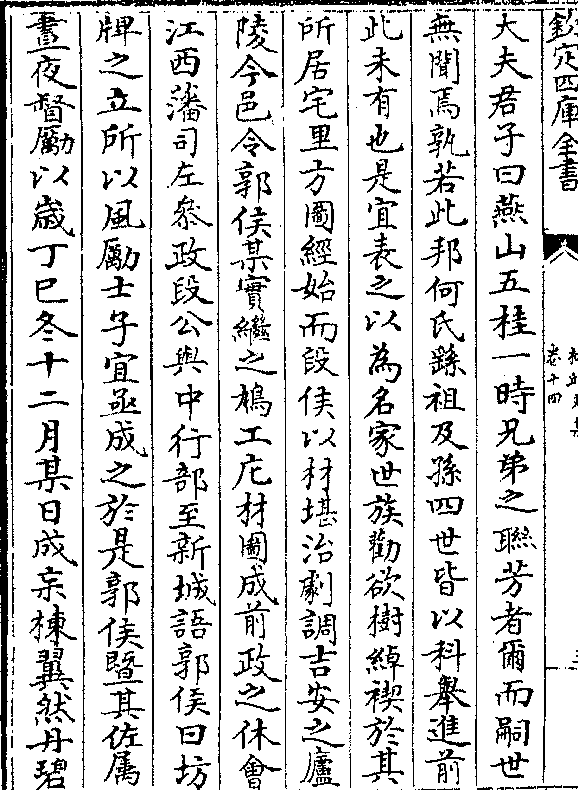 欽定四庫全書
卷十四
大夫君子曰燕山五桂一時兄弟之聯芳者爾而嗣世
無聞焉孰若此邦何氏繇祖及孫四世皆以科舉進前
此未有也是宜表之以為名家世族勸欲樹綽楔於其
所居宅里方圖經始而段侯以材堪治劇調吉安之廬
陵今邑令郭侯某實繼之鳩工庀材圖成前政之休會
江西藩司左叅政段公與中行部至新城語郭侯曰坊
牌之立所以風勵士子宜亟成之於是郭侯暨其佐属
晝夜督勵以歲丁巳冬十二月某日成宲棟翼然丹碧